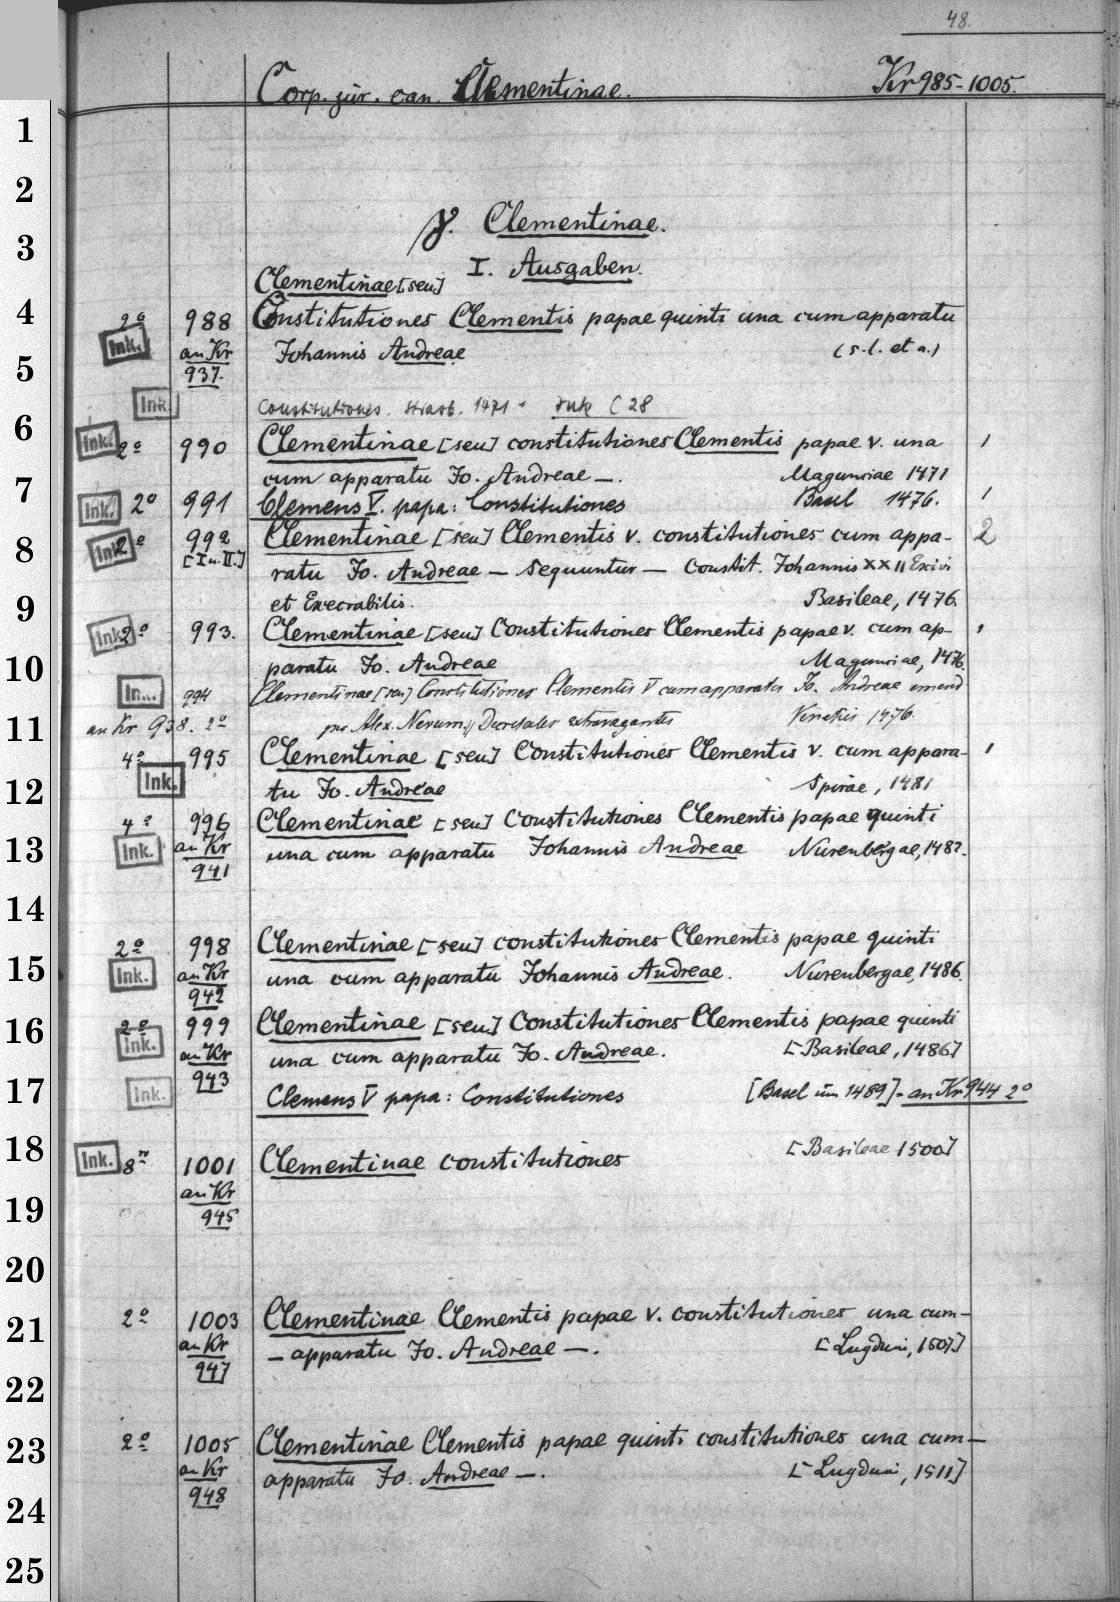 48.
Corp. jur. can. Clementinae. Kr 985-1005.
1
2
γ. Clementinae.
3
I. Ausgaben.
Clementinae [seu]
4 2° 988 Constitutiones Clementis papae quinti una cum apparatu
Ink. an Kr Johannis Andreae (s. l. et a.)
5 937.
Ink. Constitutiones. Strasb. 1471 - Ink C 28
6 Ink. 2° 990 Clementinae [seu] constitutiones Clementis papae V. una 1
7 cum apparatu Jo. Andreae —. Maguntiae 1471
Ink. 2° 991 Clemens V. papa: Constitutiones Basel 1476. 1
8 Ink. 2° 992 Clementinae [seu] Clementis V. constitutiones cum appa- 2
[I u. II.] ratu Jo. Andreae — Sequuntur — Constit. Johannis XXII Exivi
9 et Execrabilis. Basileae, 1476.
Ink. 2° 993. Clementinae [seu] Constitutiones Clementis papae V. cum ap- 1
10 paratu Jo. Andreae Maguntiae, 1476.
In... 994 Clementinae [seu] Constitutiones Clementis V cum apparatu Jo. Andreae emend
11 an Kr 938. 2° per Alex. Nevum. Decretales extravagantes Venetiis 1476.
4° 995 Clementinae [seu] Constitutiones Clementis V. cum appara- 1
12 Ink. tu Jo. Andreae Spirae, 1481
4° 996 Clementinae [seu] Constitutiones Clementis papae quinti
13 Ink. an Kr una cum apparatu Johannis Andreae Nurenbergae, 1482.
941
14
2° 998 Clementinae [seu] constitutiones Clementis papae quinti
15 Ink. an Kr una cum apparatu Johannis Andreae. Nurenbergae, 1486.
942
16 2° 999 Clementinae [seu] Constitutiones Clementis papae quinti
Ink. an Kr una cum apparatu Jo. Andreae. [Basileae, 1486]
943
17 Ink. Clemens V papa: Constitutiones [Basel um 1489] - an Kr 944 2°
18 Ink. 8° 1001 Clementinae constitutiones [Basileae 1500]
an Kr
19 945
20
21 2° 1003 Clementinae Clementis papae V. constitutiones una cum—
an Kr — apparatu Jo. Andreae —. [Lugduni, 1507]
947
22
23 2° 1005 Clementinae Clementis papae quinti constitutiones una cum—
an Kr apparatu Jo. Andreae —. [Lugduni, 1511]
948
24
25